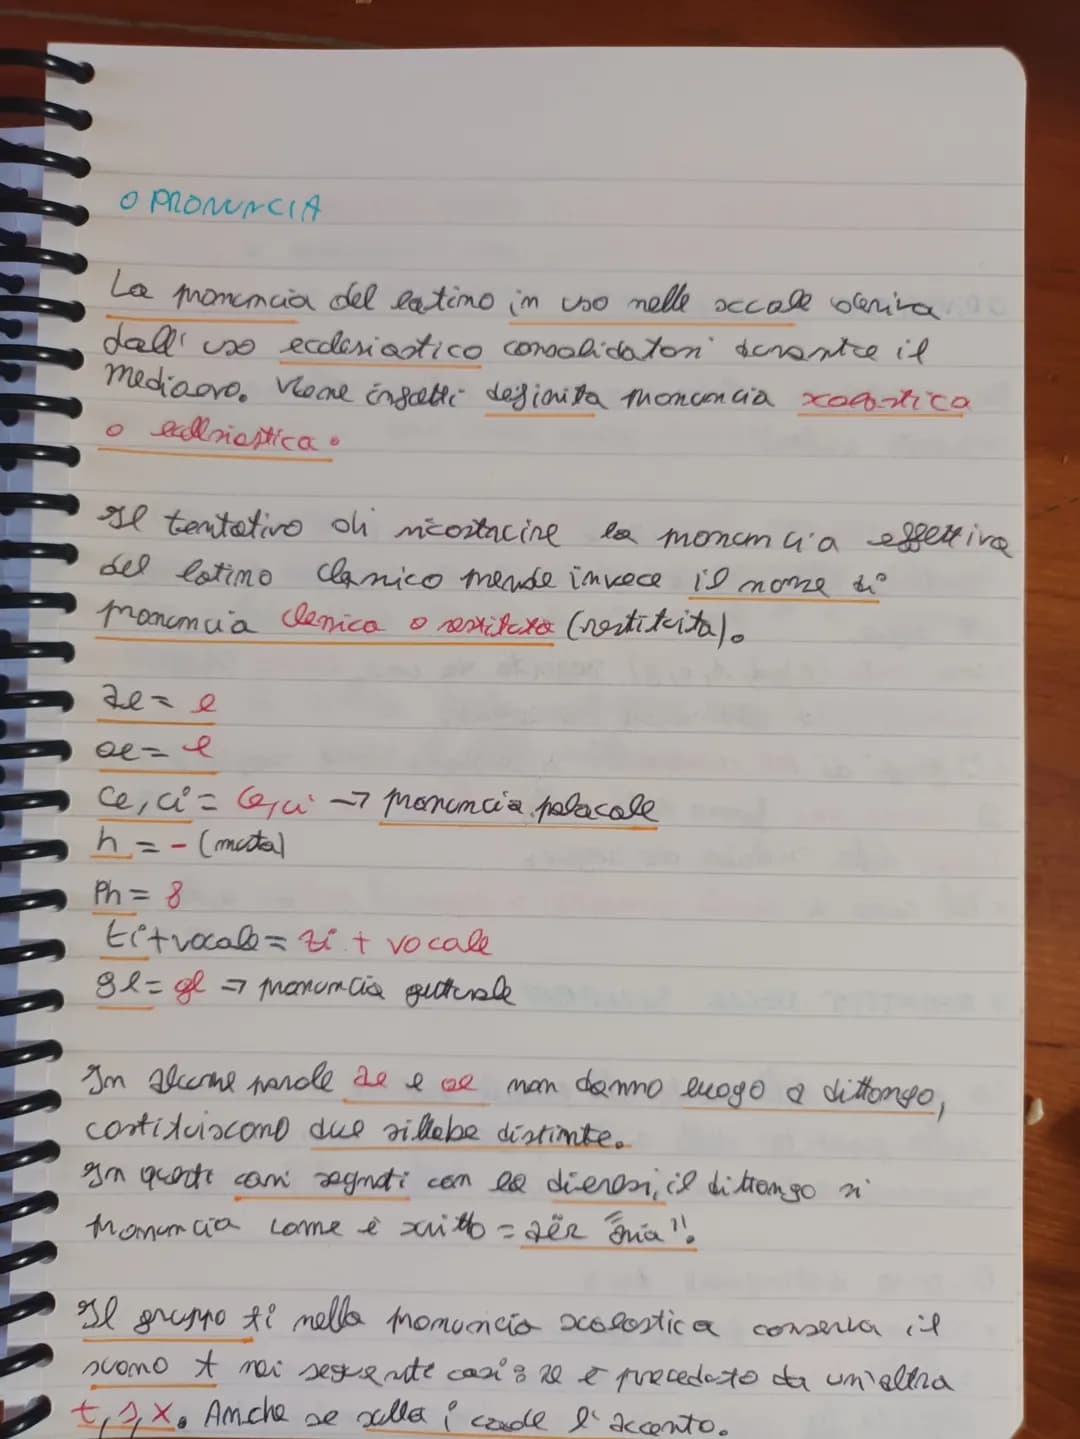 O PRONUNCIA
La pronuncia del latino in uso nelle scuole deriva
dall'uso ecclesiastico consolidatosi durante il
Medioevo. Viene infatti definita pronuncia scolastica
o ecclesiastica.
Il tentativo di ricostruire la pronuncia effettiva
del latino classico prende invece il nome di
pronuncia classica o restituta (restituita).
ae = e
oe = e
ce, ci = ce, ci → pronuncia palatale
h = - (muta)
Ph = f
ti + vocale = zi + vocale
gl = gl → pronuncia gutturale
In alcune parole ae e oe non danno luogo a dittongo,
costituiscono due sillabe distinte.
In questi casi segnati con la dieresi, il dittongo si
pronuncia come è scritto = aër "aria".
Il gruppo ti nella pronuncia scolastica conserva il
suono t nei seguenti casi: se è preceduto da un'altra
t, s, x. Anche se sulla i cade l'accento.